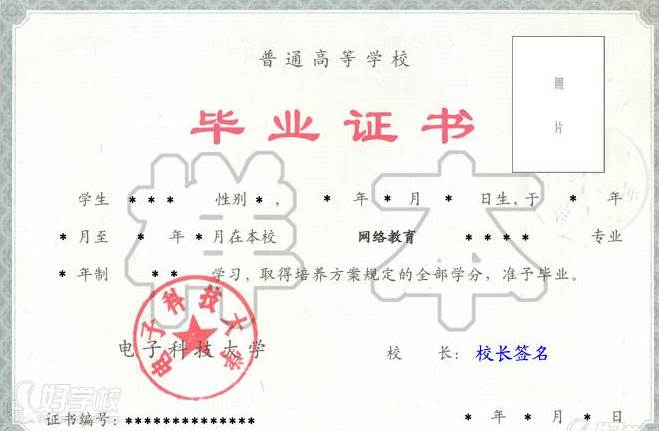 普通高等学校
照
片
毕业证书
样本
学生 * * * 性别 * ， * 年 * 月 * 日生，于 * 年
* 月至 * 年 * 月在本校 网络教育 * * * * 专业
* 年制 * * 学习，取得培养方案规定的全部学分，准予毕业。
电子科技大学
电子科技大学 校 长： 校长签名
好学校
证书编号：************** * 年 * 月 * 日